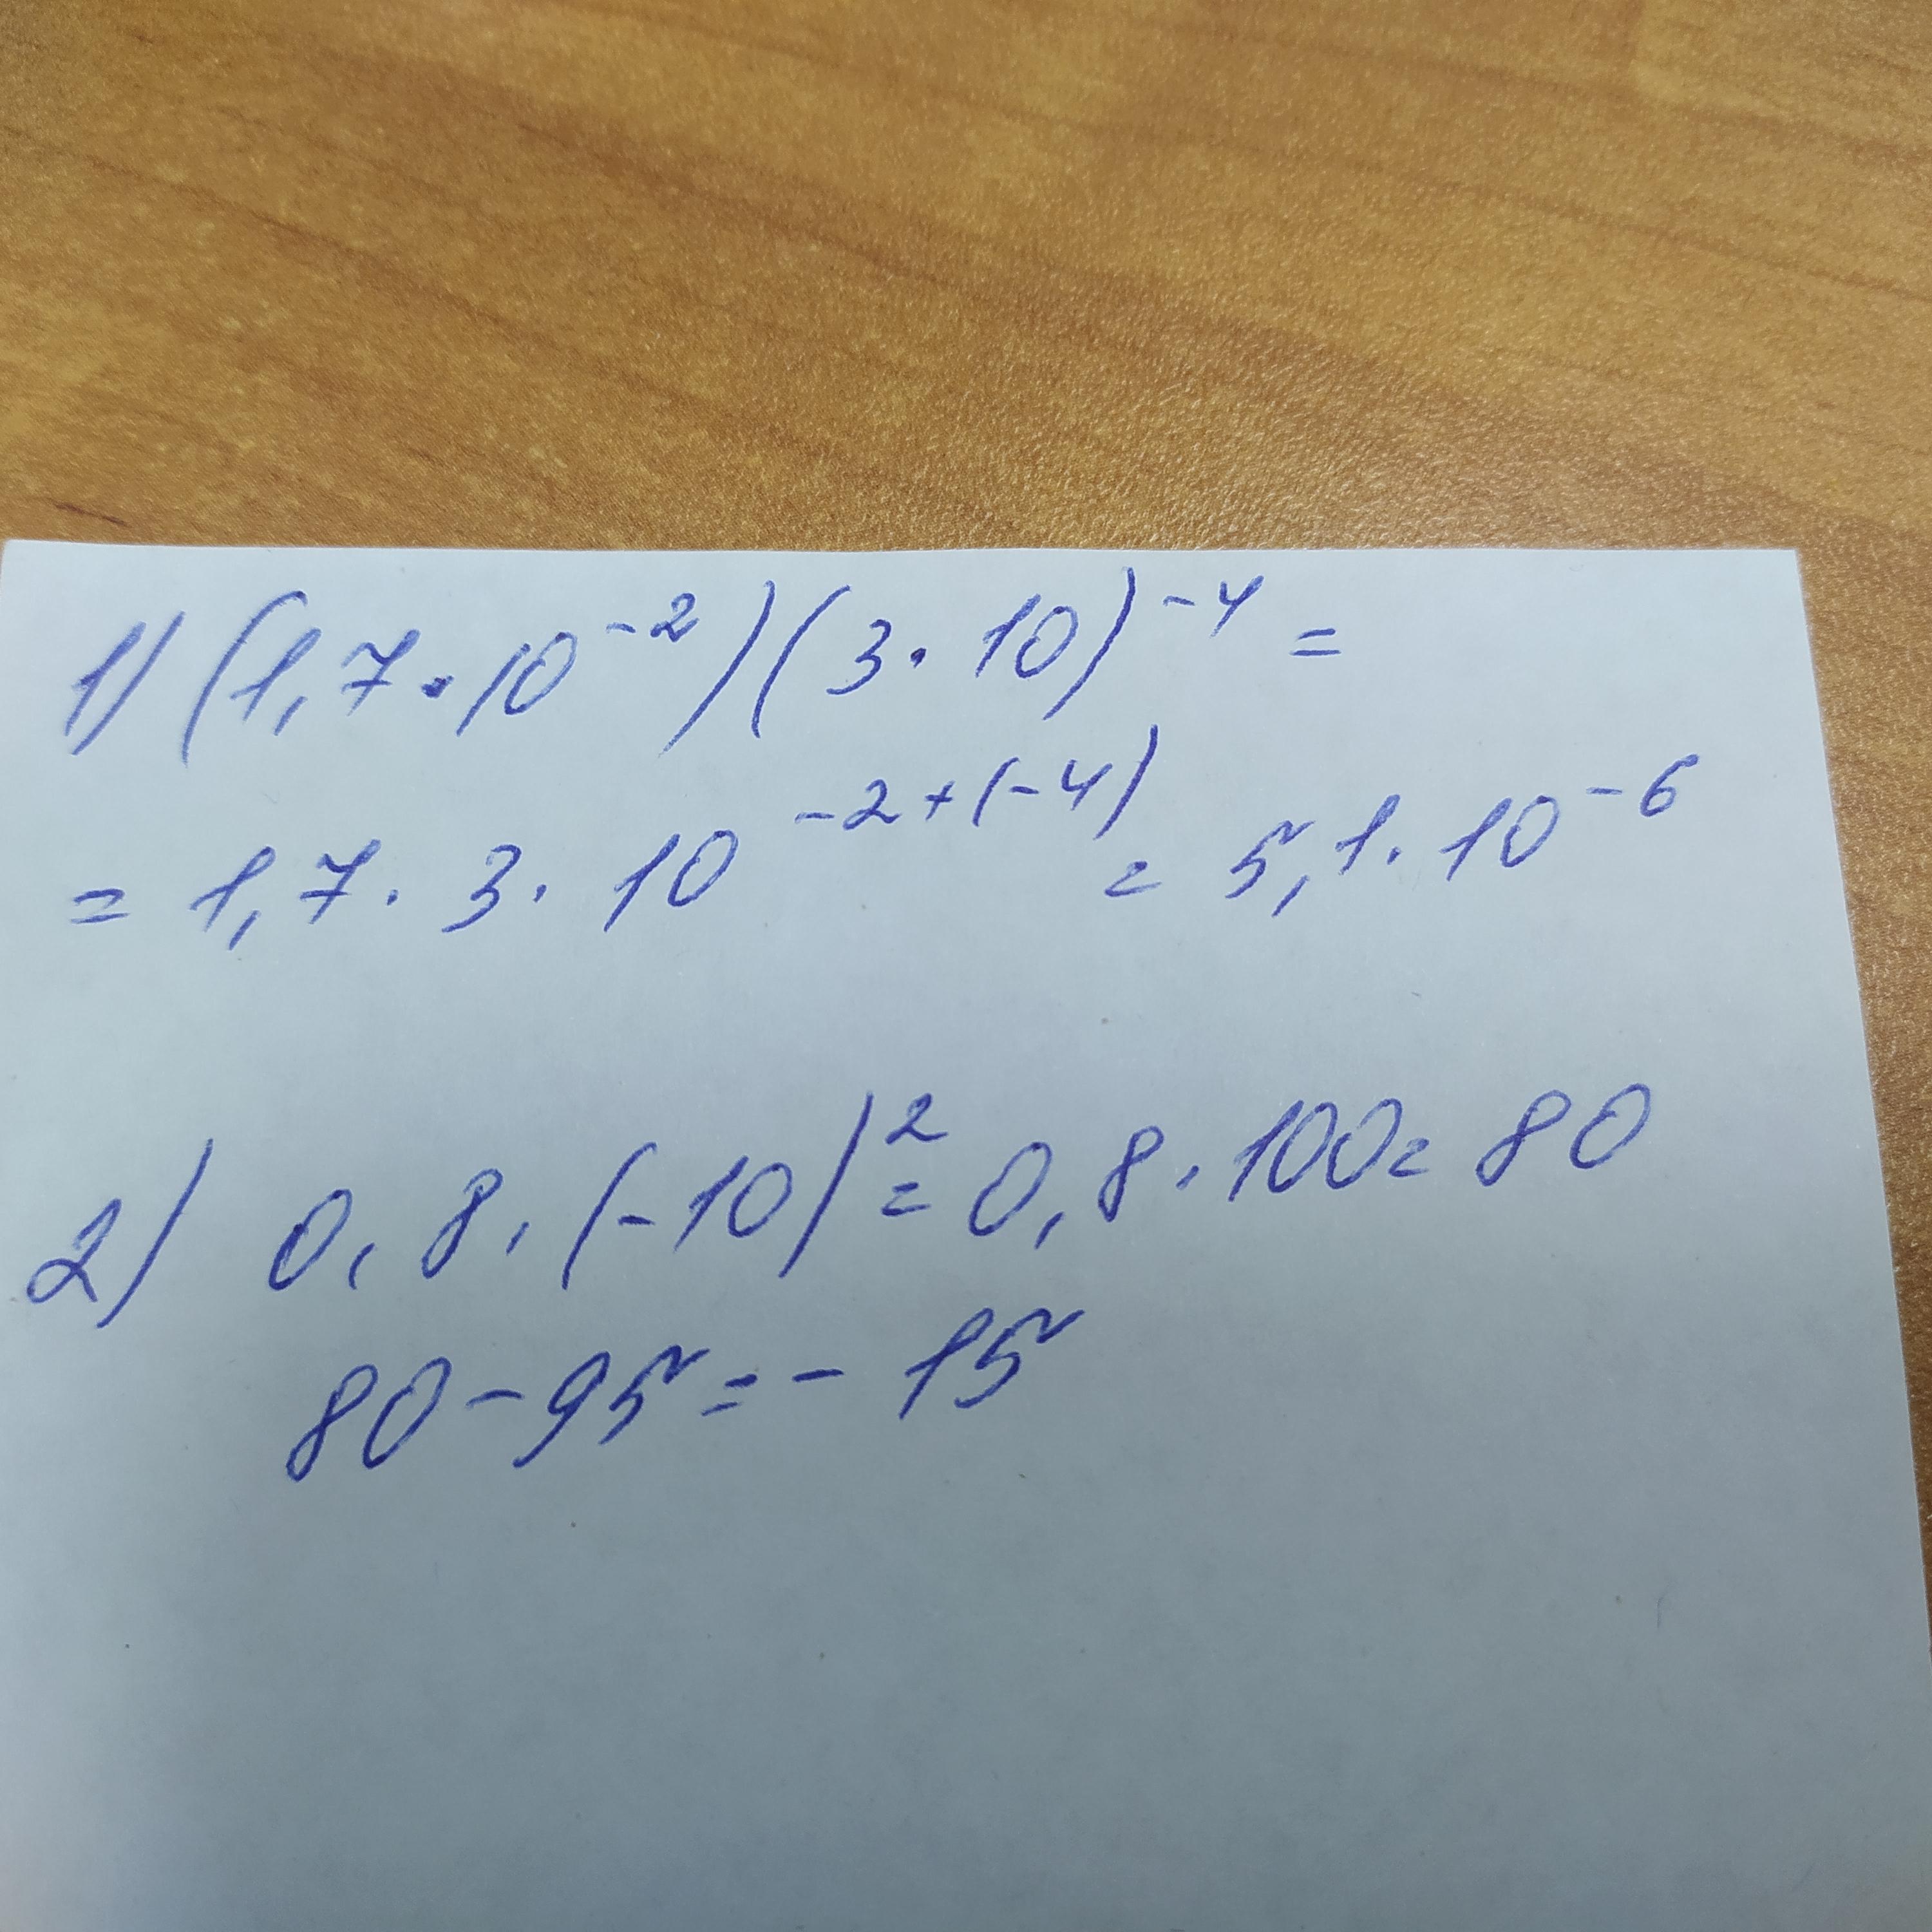 1) (1,7·10⁻²)(3·10)⁻⁴ =
= 1,7·3·10⁻²⁺⁽⁻⁴⁾ = 5,1·10⁻⁶
2) 0,8·(-10)² = 0,8·100 = 80
80-95=-15